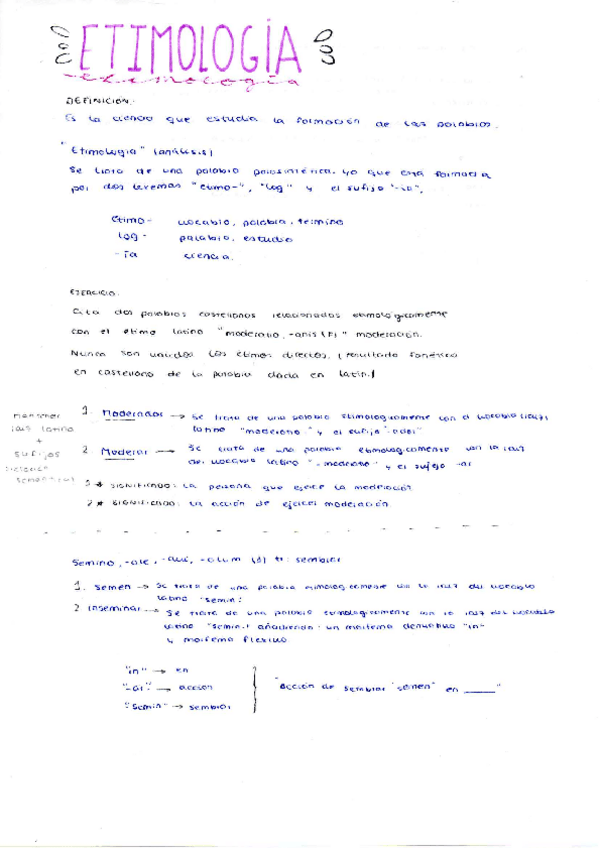 ETIMOLOGÍA
etimología
DEFINICIÓN.
Es la ciencia que estudia la formación de las palabras.
"Etimología" (análisis)
Se trata de una palabra polisintérica, ya que está formada
por dos lexemas "etimo-", "log" y el sufijo "-ia".
Etimo- vocablo, palabra, término
log- palabra, estudio
-ia ciencia.
EJERCICIO.
Cita dos palabras castellanas relacionadas etimológicamente
con el étimo latino "moderatio, -onis (f)" moderación.
Nunca son válidos los étimos directos. (resultado fonético
en castellano de la palabra dada en latín.)
Mantener
raiz latina
+
sufijos
1. Moderador → Se trata de una palabra etimologicamente con el vocablo (raiz)
latino "moderatio" y el sufijo "-ador"
2 Moderar → Se trata de una palabra etimologicamente con la raiz
del vocablo latino "-moderatio" y el sufijo -ar
1 * SIGNIFICADO: La persona que ejerce la moderación
2 * SIGNIFICADO: La acción de ejercer moderación
Semino, -are, -avi, -atum (d) tr: sembrar
1. Semen → Se trata de una palabra etimologicamente con la raiz del vocablo
latino "semin:
2 Inseminar → Se trata de una palabra etimologicamente con la raiz del vocablo
latino "semin:" añadiendo: un morfema derivativo "in"
y morfema flexivo
"in" → en
"-ar" → acción
"Semin" → sembrar
"acción de sembrar "semen" en ____"